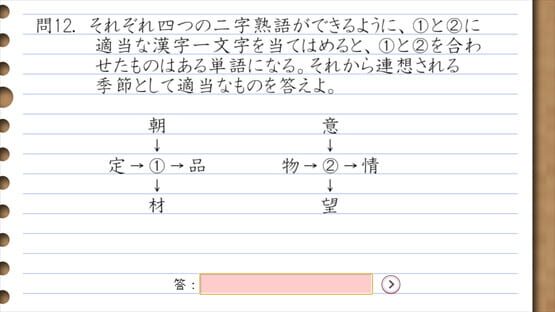 問12. それぞれ四つの二字熟語ができるように、①と②に
適当な漢字一文字を当てはめると、①と②を合わ
せたものはある単語になる。それから連想される
季節として適当なものを答えよ。
朝 意
↓ ↓
定→①→品 物→②→情
↓ ↓
材 望
答: